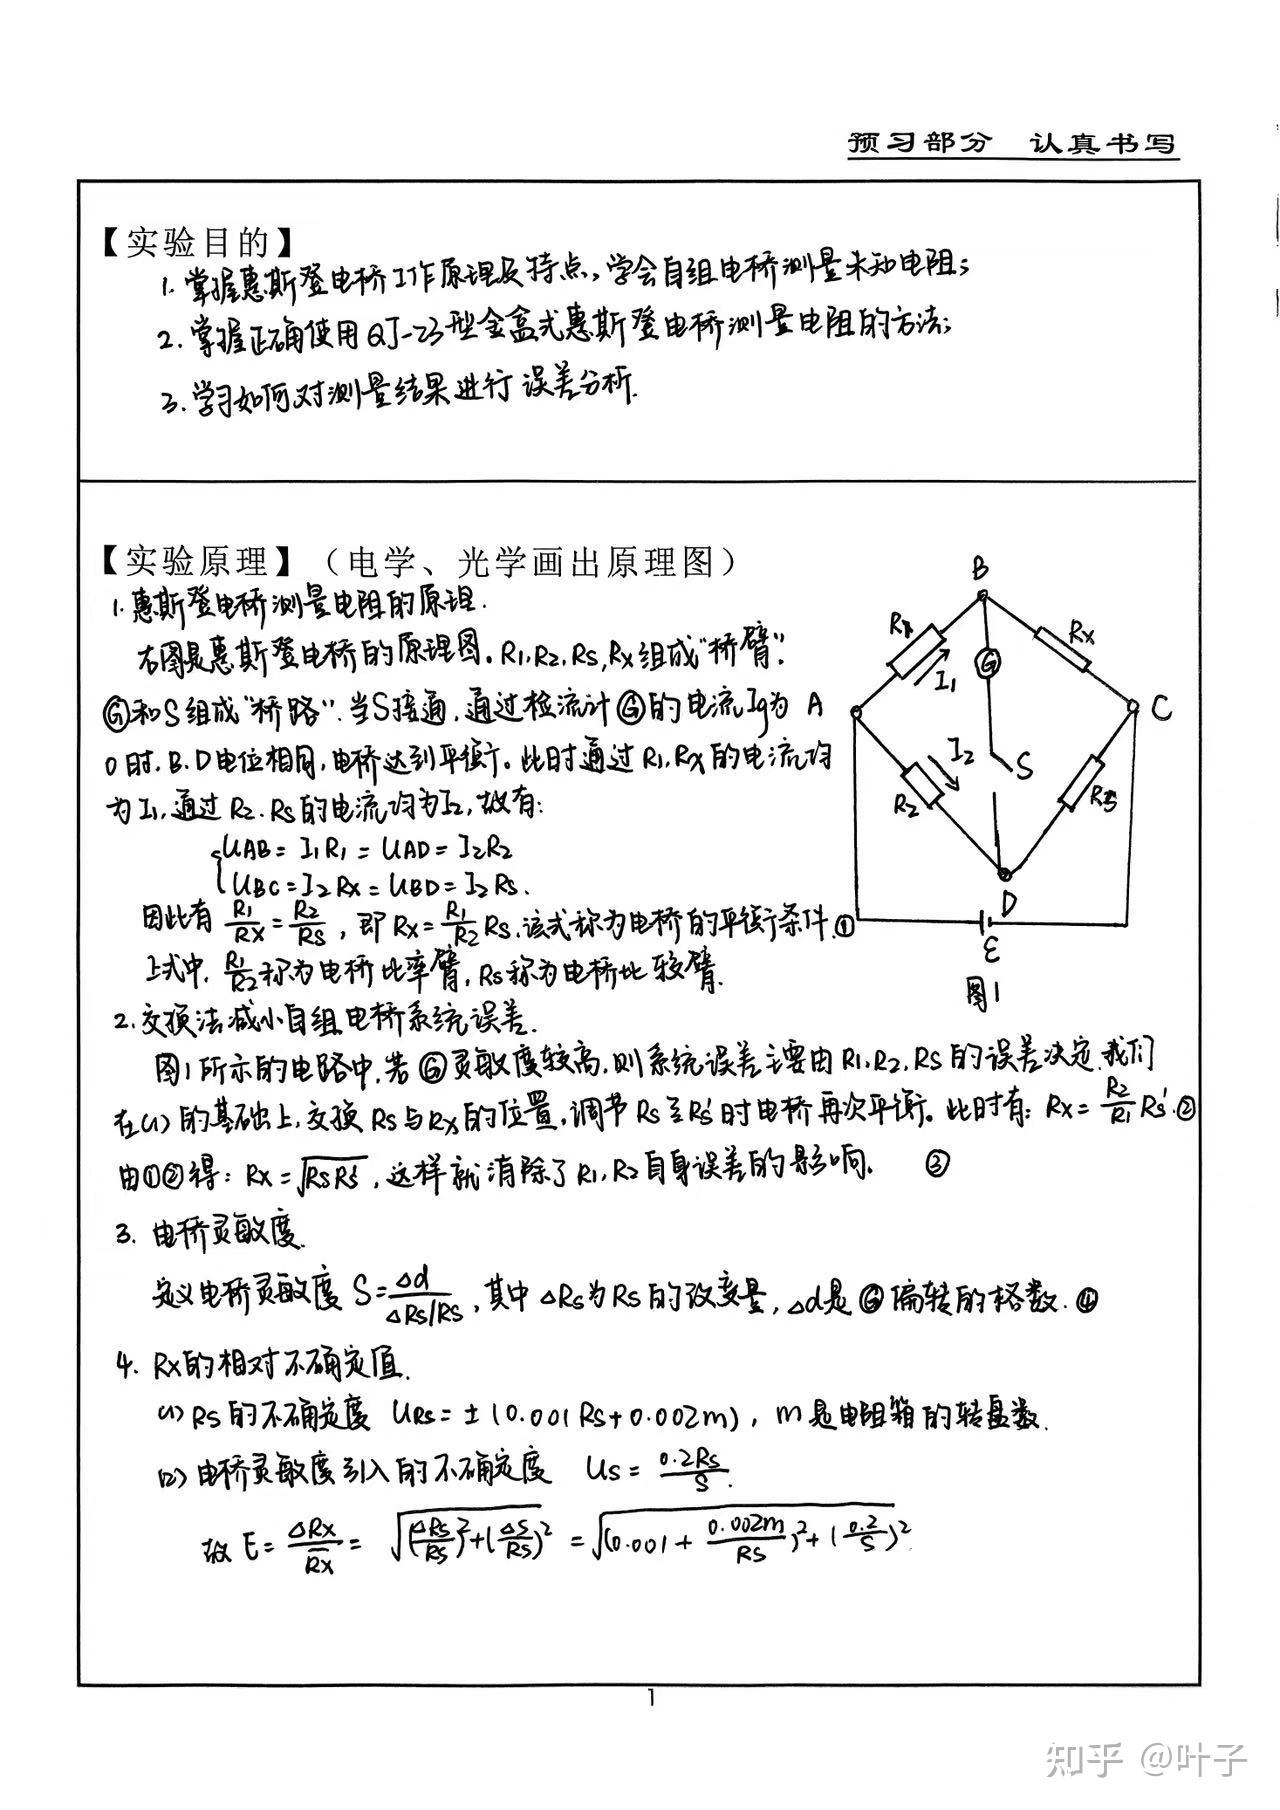 预习部分 认真书写
【实验目的】
1. 掌握惠斯登电桥工作原理及特点,学会自组电桥测量未知电阻;
2. 掌握正确使用QJ-23型金盒式惠斯登电桥测量电阻的方法;
3. 学习如何对测量结果进行误差分析.
【实验原理】(电学、光学画出原理图)
1. 惠斯登电桥测量电阻的原理.
右图是惠斯登电桥的原理图。R1,R2,Rs,Rx组成“桥臂”.
Ⓖ和S组成“桥路”.当S接通,通过检流计Ⓖ的电流Ig为
0时,B.D电位相同,电桥达到平衡。此时通过R1,Rx的电流均
为I1,通过R2.Rs的电流均为I2,故有:
UAB = I1R1 = UAD = I2R2
UBC = I2Rx = UBD = I2Rs.
因此有 R1/Rx = R2/Rs, 即 Rx = R1/R2 Rs.该式称为电桥的平衡条件.①
上式中, R1/R2 称为电桥比率臂, Rs称为电桥比较臂.
B
Rx
G
I1
A
C
I2
S
R2
Rs
D
E
图1
2. 交换法减小自组电桥系统误差.
图1所示的电路中,若Ⓖ灵敏度较高,则系统误差主要由R1,R2,Rs的误差决定.我们
在(1)的基础上,交换Rs与Rx的位置,调节Rs至Rs'时电桥再次平衡。此时有: Rx = R2/R1 Rs'.②
由①②得: Rx = √RsRs', 这样就消除了R1,R2自身误差的影响. ③
3. 电桥灵敏度.
定义电桥灵敏度 S = Δd/(ΔRs/Rs), 其中ΔRs为Rs的改变量, Δd是Ⓖ偏转的格数. ④
4. Rx的相对不确定值.
(1) Rs的不确定度 URs = ±(0.001Rs+0.002m), m是电阻箱的转盘数.
(2) 电桥灵敏度引入的不确定度 Us = 0.2Rs/S.
故 E = ΔRx/Rx = √(ΔRs/Rs)²+(ΔS/Rs)² = √(0.001+0.002m/Rs)²+(0.2/S)²
1
知乎 @叶子